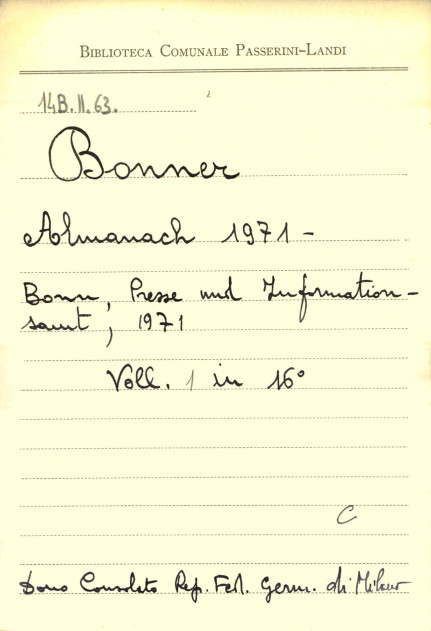 BIBLIOTECA COMUNALE PASSERINI-LANDI
14B.II.63.
Bonner
Almanach 1971 -
Bonn, Presse und Information-
samt, 1971
Voll. 1 in 16°
C
Dono Consolato Rep. Fed. Germ. di Milano